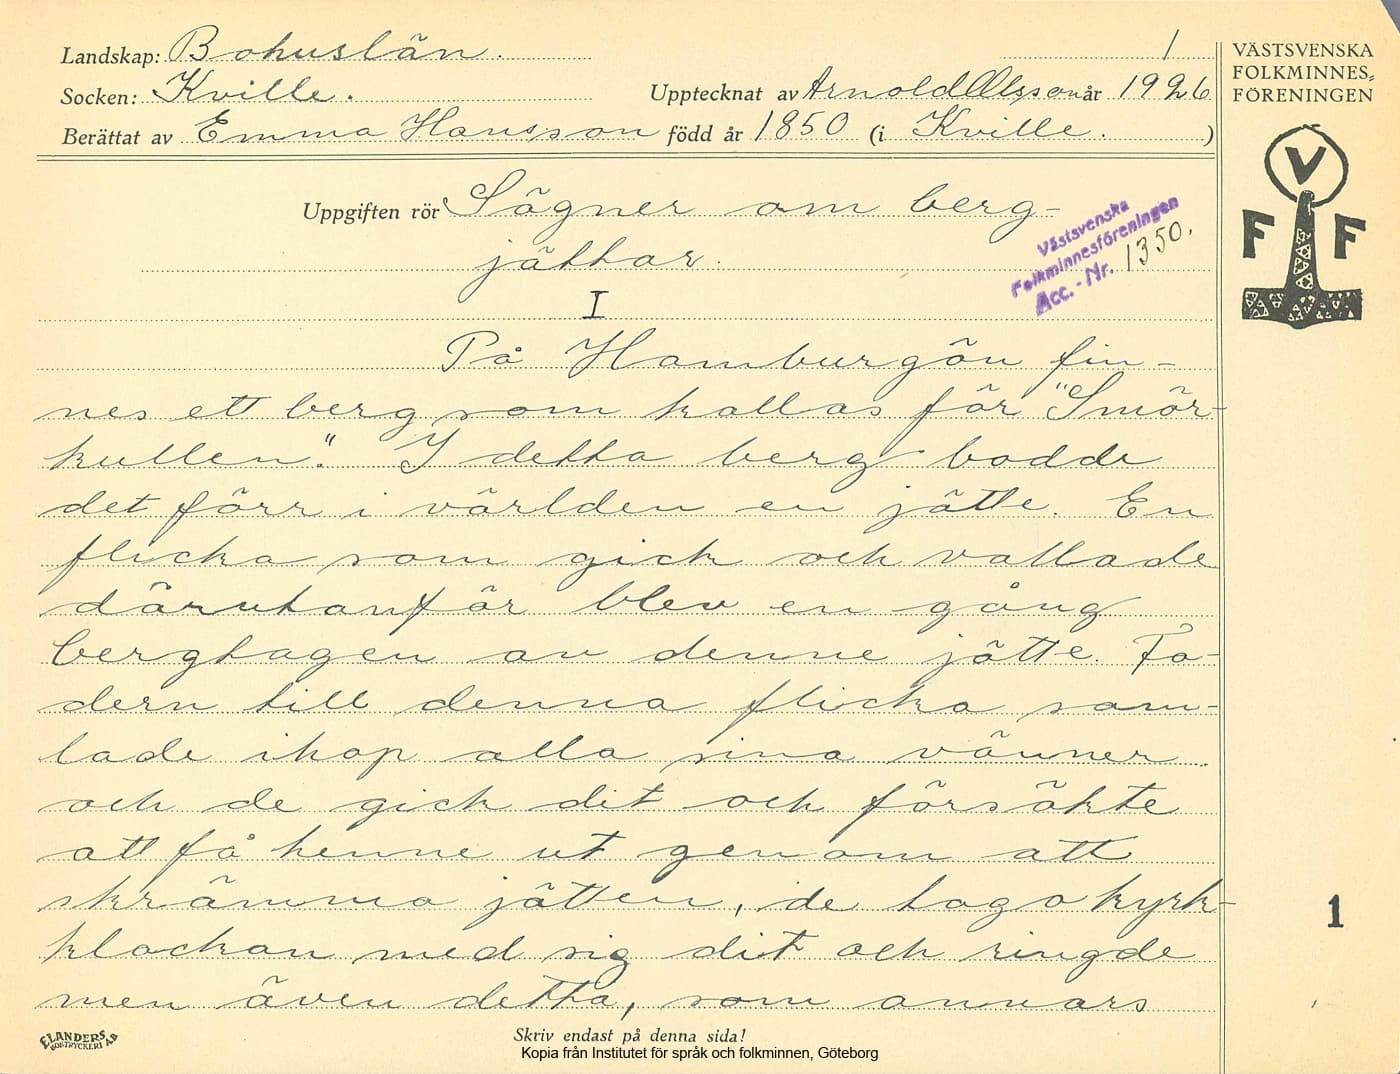 Landskap: Bohuslän. 1
Socken: Kville. Upptecknat av Arnold Olsson år 1926
Berättat av Emma Hansson född år 1850 (i Kville. )
Uppgiften rör Sägner om berg-
jättar.
Västsvenska
Folkminnesföreningen
Acc. - Nr. 1350.
I
På Hamburgön fin-
nes ett berg som kallas för "Smör-
kullen". I detta berg bodde
det förr i världen en jätte. En
flicka som gick och vallade
därutanför blev en gång
bergtagen av denne jätte. Fa-
dern till denna flicka sam-
lade ihop alla sina vänner
och de gick dit och försökte
att få henne ut genom att
skrämma jätten, de togo kyrk-
klockan med sig dit och ringde
men även detta, som annars
VÄSTSVENSKA
FOLKMINNES-
FÖRENINGEN
V
F F
1
ELANDERS
BOKTRYCKERI AB
Skriv endast på denna sida!
Kopia från Institutet för språk och folkminnen, Göteborg